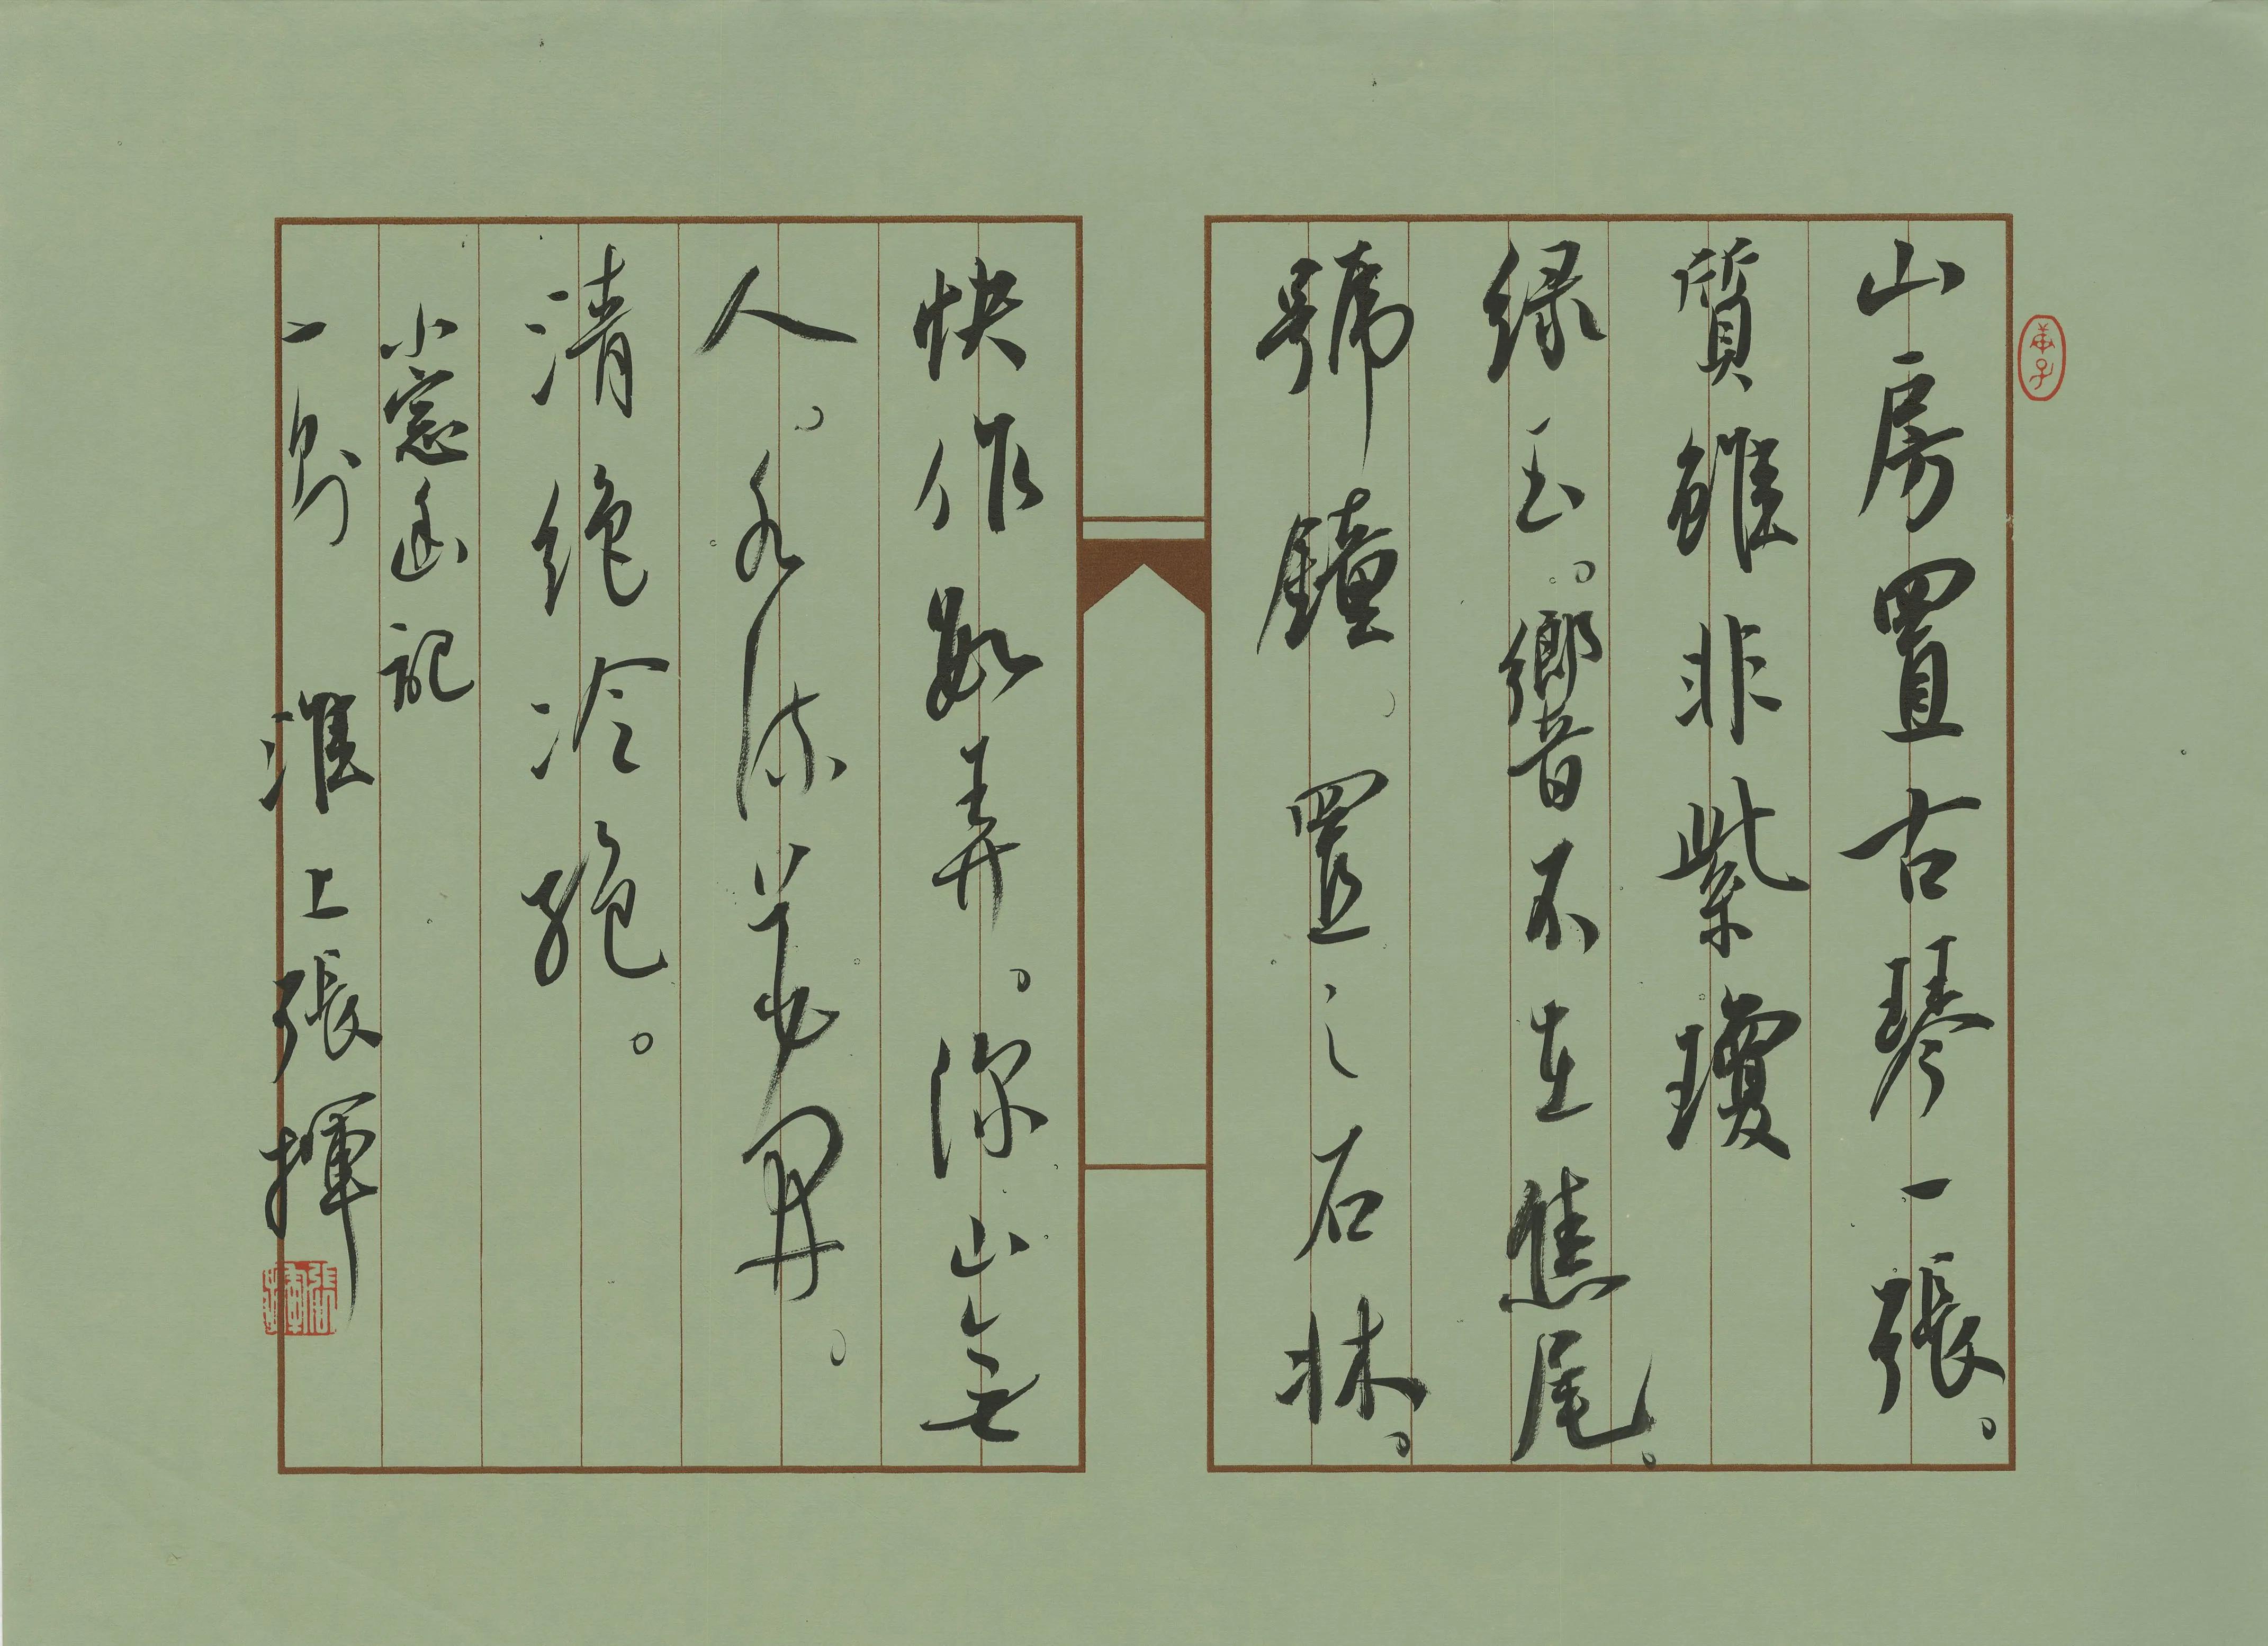 山房置古琴一張。
質雖非紫瓊
绿玉。響不在焦尾
號鐘。置之石牀。
快作數弄。深山無
人。水流花開。
清绝冷絶。
小窓幽記
一則 淮上張揮